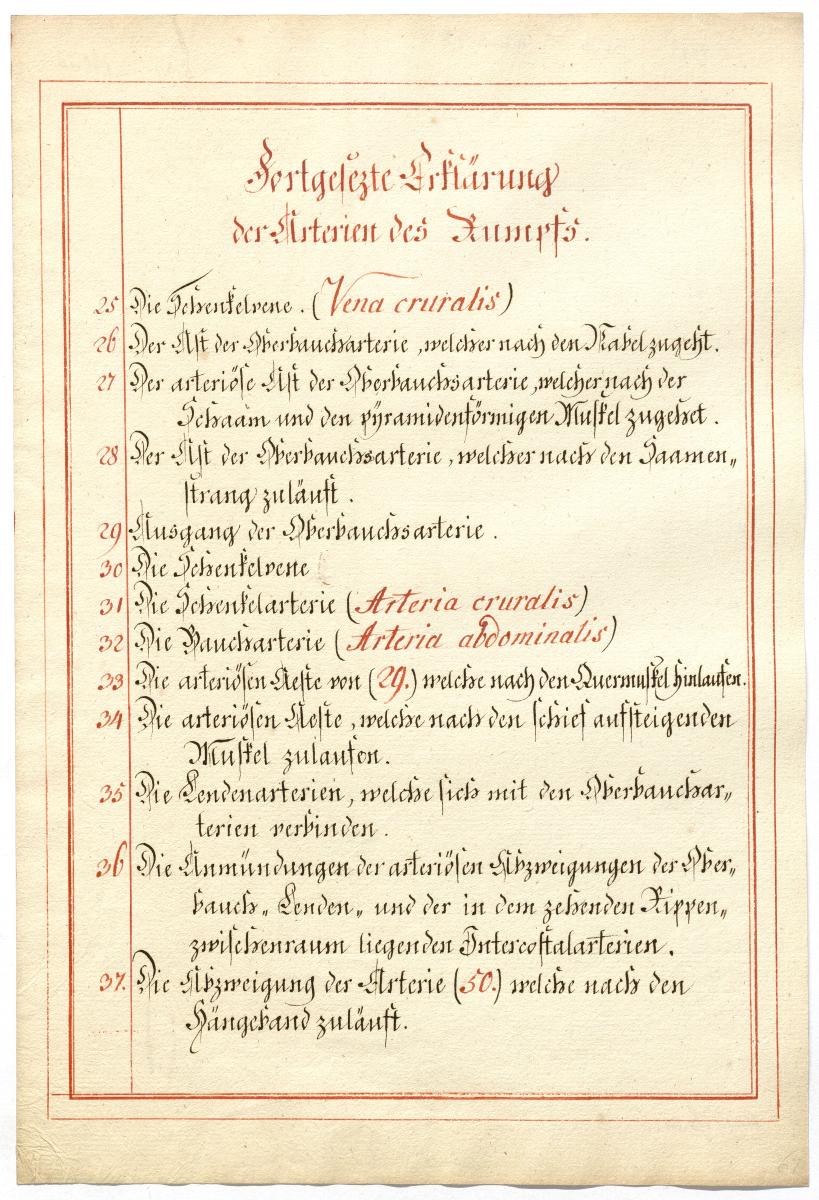 Fortgesezte Erklärung
der Arterien des Rumpfs.
25 Die Schenkelvene. (Vena cruralis)
26 Der Ast der Oberbaucharterie, welcher nach den Nabel zugeht.
27 Der arteriöse Ast der Oberbauchsarterie, welcher nach der
Schaam und den pÿramidenförmigen Muskel zugehet.
28 Der Ast der Oberbauchsarterie, welcher nach den Saamen„
strang zuläuft.
29 Ausgang der Oberbauchsarterie.
30 Die Schenkelvene
31 Die Schenkelarterie (Arteria cruralis)
32 Die Baucharterie (Arteria abdominalis)
33 Die arteriösen Aeste von (29.) welche nach den Quermuskel hinlaufen.
34 Die arteriösen Aeste, welche nach den schief aufsteigenden
Muskel zulaufen.
35 Die Lendenarterien, welche sich mit den Oberbauchar„
terien verbinden.
36 Die Anmündungen der arteriösen Abzweigungen der Ober„
bauch„ Lenden„ und der in dem zehenden Rippen„
zwischenraum liegenden Intercostalarterien.
37. Die Abzweigung der Arterie (50.) welche nach den
Hängeband zuläuft.